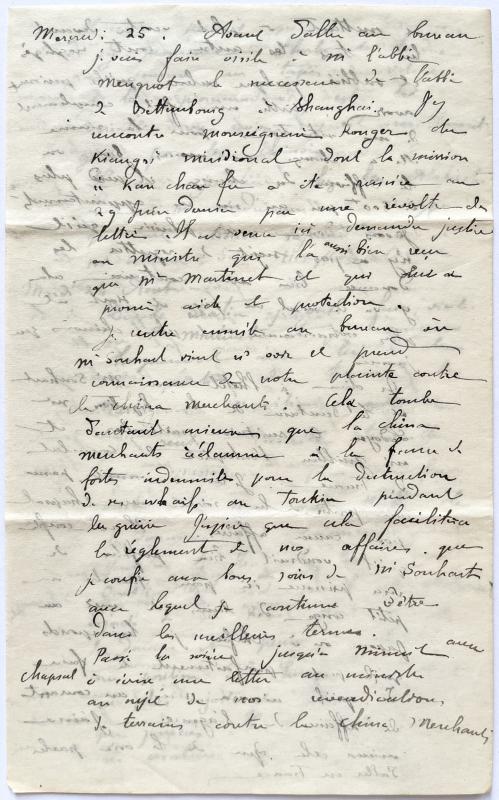 Mercredi 25. Avant d'aller au bureau
je vais faire visite à Mr l'abbé
Meugniot le successeur de l'abbé
à Shanghai. J'y
rencontre monseigneur Rouger du
Kiangsi méridional dont la mission
à Kan chau fu a été ruinée au
29 Juin dernier par une révolte des
lettrés. Il est venu ici demander justice
au ministre qui l'a aussi bien reçu
que Mr Martinet et qui lui a
promis aide et protection.
je rentre ensuite au bureau où
Mr Souhart vient nous voir et prend
connaissance de notre plainte contre
la China Merchants. Cela tombe
d'autant mieux que la China
Merchants réclamme à la france de
fortes indemnités pour la destruction
de ses wharfs au Tonkin pendant
la guerre. J'espère que cela facilitera
le règlement de nos affaires que
je confie aux bons soins de Mr Souhart
avec lequel je continue d'être
dans les meilleurs termes.
Passé la soirée jusqu'à minuit avec
Chapsal à écrire une lettre au ministre
au sujet de nos revendications
de terrains contre la China Merchants